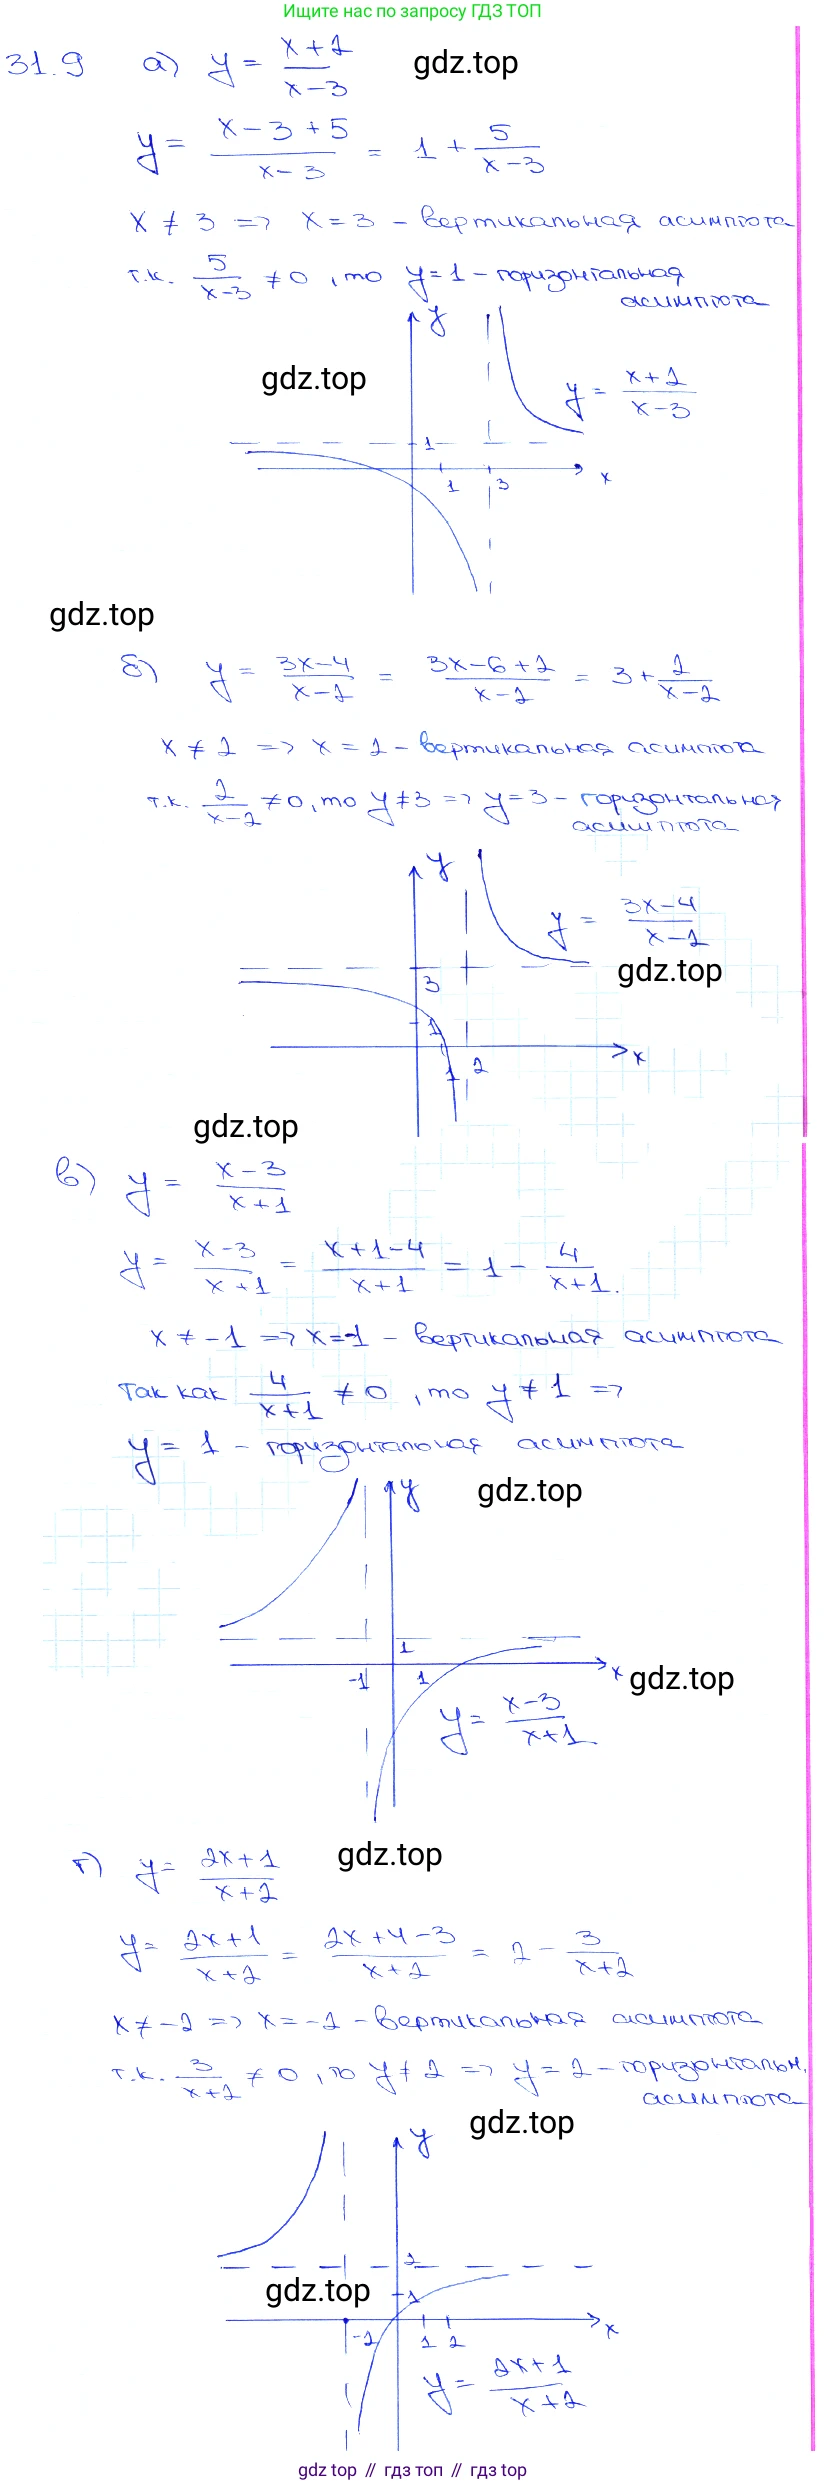 Ищите нас по запросу ГДЗ ТОП
31.9 а) y = (x+2)/(x-3)
gdz.top
y = (x-3+5)/(x-3) = 1 + 5/(x-3)
x ≠ 3 => x = 3 - вертикальная асимптота
т.к. 5/(x-3) ≠ 0, то y = 1 - горизонтальная
асимптота
y
gdz.top
y = (x+2)/(x-3)
1
1 3 x
gdz.top
б) y = (3x-4)/(x-2) = (3x-6+2)/(x-2) = 3 + 2/(x-2)
x ≠ 2 => x = 2 - вертикальная асимптота
т.к. 2/(x-2) ≠ 0, то y ≠ 3 => y = 3 - горизонтальная
асимптота
y
y = (3x-4)/(x-2)
gdz.top
3
1
1 2 x
gdz.top
в) y = (x-3)/(x+1)
y = (x-3)/(x+1) = (x+1-4)/(x+1) = 1 - 4/(x+1).
x ≠ -1 => x = -1 - вертикальная асимптота
Так как 4/(x+1) ≠ 0, то y ≠ 1 =>
y = 1 - горизонтальная асимптота
y
gdz.top
1
-1 1 x
gdz.top
y = (x-3)/(x+1)
г) y = (2x+1)/(x+2)
gdz.top
y = (2x+1)/(x+2) = (2x+4-3)/(x+2) = 2 - 3/(x+2)
x ≠ -2 => x = -2 - вертикальная асимптота
т.к. 3/(x+2) ≠ 0, то y ≠ 2 => y = 2 - горизонтальн.
асимптота
y
gdz.top
2
gdz.top
1
-2 1 2 x
y = (2x+1)/(x+2)
gdz top // гдз топ // gdz top